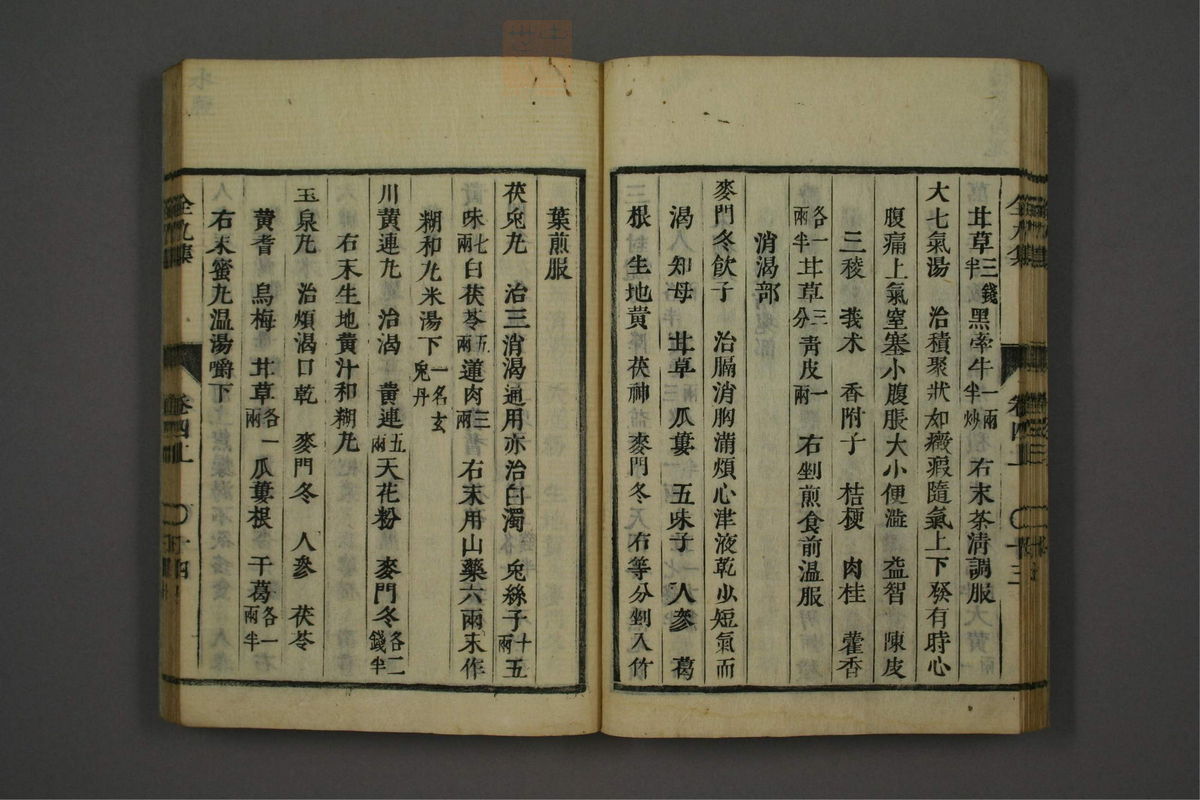 全九集
卷四上
十三
甘草三錢半黑牽牛一兩半炒 右末茶清調服
大七氣湯 治積聚狀如癥瘕隨氣上下發有時心
腹痛上氣窒塞小腹脹大小便澁 益智 陳皮
三稜 莪朮 香附子 桔梗 肉桂 藿香
各一兩半甘草三分青皮一兩 右剉煎食前温服
消渴部
麥門冬飲子 治膈消胸滿煩心津液乾少短氣而
渴 知母 甘草 瓜蔞 五味子 人參 葛
根 生地黄 茯神 麥門冬 右等分剉入竹
葉煎服
茯兎九 治三消渴通用亦治白濁 兎絲子十兩五
味七兩白茯苓五兩蓮肉三兩 右末用山藥六兩末作
糊和九米湯下一名玄兎丹
川黄連九 治渴 黄連五兩天花粉 麥門冬各二錢半
右末生地黄汁和糊九
玉泉九 治煩渴口乾 麥門冬 人參 茯苓
黄耆 烏梅 甘草各一兩 瓜蔞根 干葛各一兩半
右末蜜九温湯嚼下
全九集
卷四上
十四